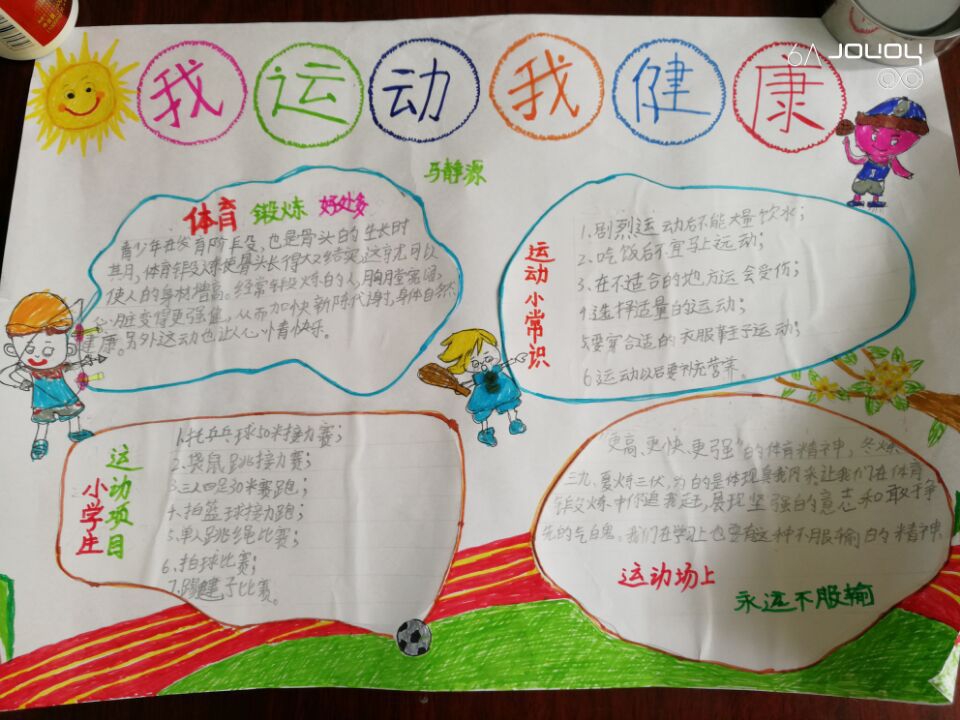 6A JOYOY
我运动我健康
马静源
体育 锻炼 好处多
青少年在发育阶段,也是骨头的生长时
其月,体育锻炼使骨头长得又大又结实,这尤可以
使人的身材增高。经常锻炼的人,胸膛宽阔,
心脏变得更强隹,从而加快新陈代谢,身体自然
健康。另外这运动也让人心情快乐。
运动小常识
1.剧烈运动后不能大量饮水;
2.吃饭后不宜马上运动;
3.在不适合的地方运会受伤;
4选择适量的运动;
5要穿合适的衣服革圭子运动;
6运动以后要补充营养。
小学庄
运动项目
1.托乒乓球50米接力赛;
2.袋鼠跳接力赛;
3.三人四足30米赛跑;
4.拍篮球接力跑;
5.单人跳绳比赛;
6.拍球比赛;
7.踢毽子比赛。
"更高、更快、更强"的体育精神,冬炼
三九、夏炼三伏,为的是体现
让我们在体育
锻炼中你追我赶,展现坚强的意志和敢于争
先的气白鬼。我们在学习上也要有这种不服输的精神
运动场上
永远不服输